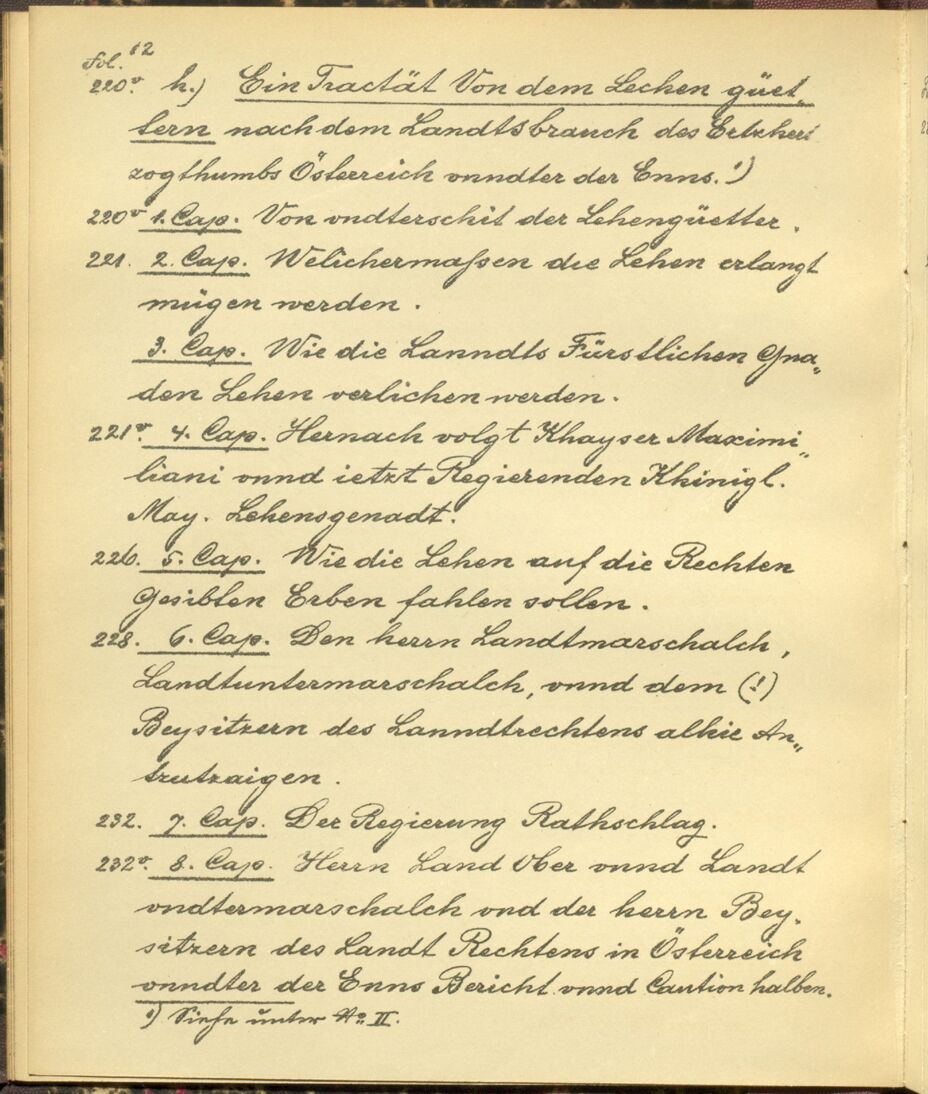 12
Fol.
220v. h.) Ein Tractät Von dem Lechen güet„
tern nach dem Landtsbrauch des Ertzher„
zogthumbs Österreich vnndter der Enns.¹)
220v 1. Cap. Von vndterschit der Lehengüetter.
221. 2. Cap. Welichermaßen die Lehen erlangt
mügen werden.
3. Cap. Wie die Lanndts Fürstlichen Gna„
den Lehen verlichen werden.
221v. 4. Cap. Hernach volgt Khayser Maximi„
liani vnnd ietzt Regierenden Khinigl.
May. Lehensgenadt.
226. 5. Cap. Wie die Lehen auf die Rechten
Gesibten Erben fahlen sollen.
228. 6. Cap. Den herrn Landtmarschalch,
Landtuntermarschalch, vnnd dem (!)
Beysitzern des Lanndtrechtens alhie An„
zutzaigen.
232. 7. Cap. Der Regierung Rathschlag.
232v. 8. Cap. Herrn Land Ober vnnd Landt
vndtermarschalch vnd der herrn Bey„
sitzern des Landt Rechtens in Österreich
vnndter der Enns Bericht vnnd Caution halben.
¹) Siehe unter No. II.